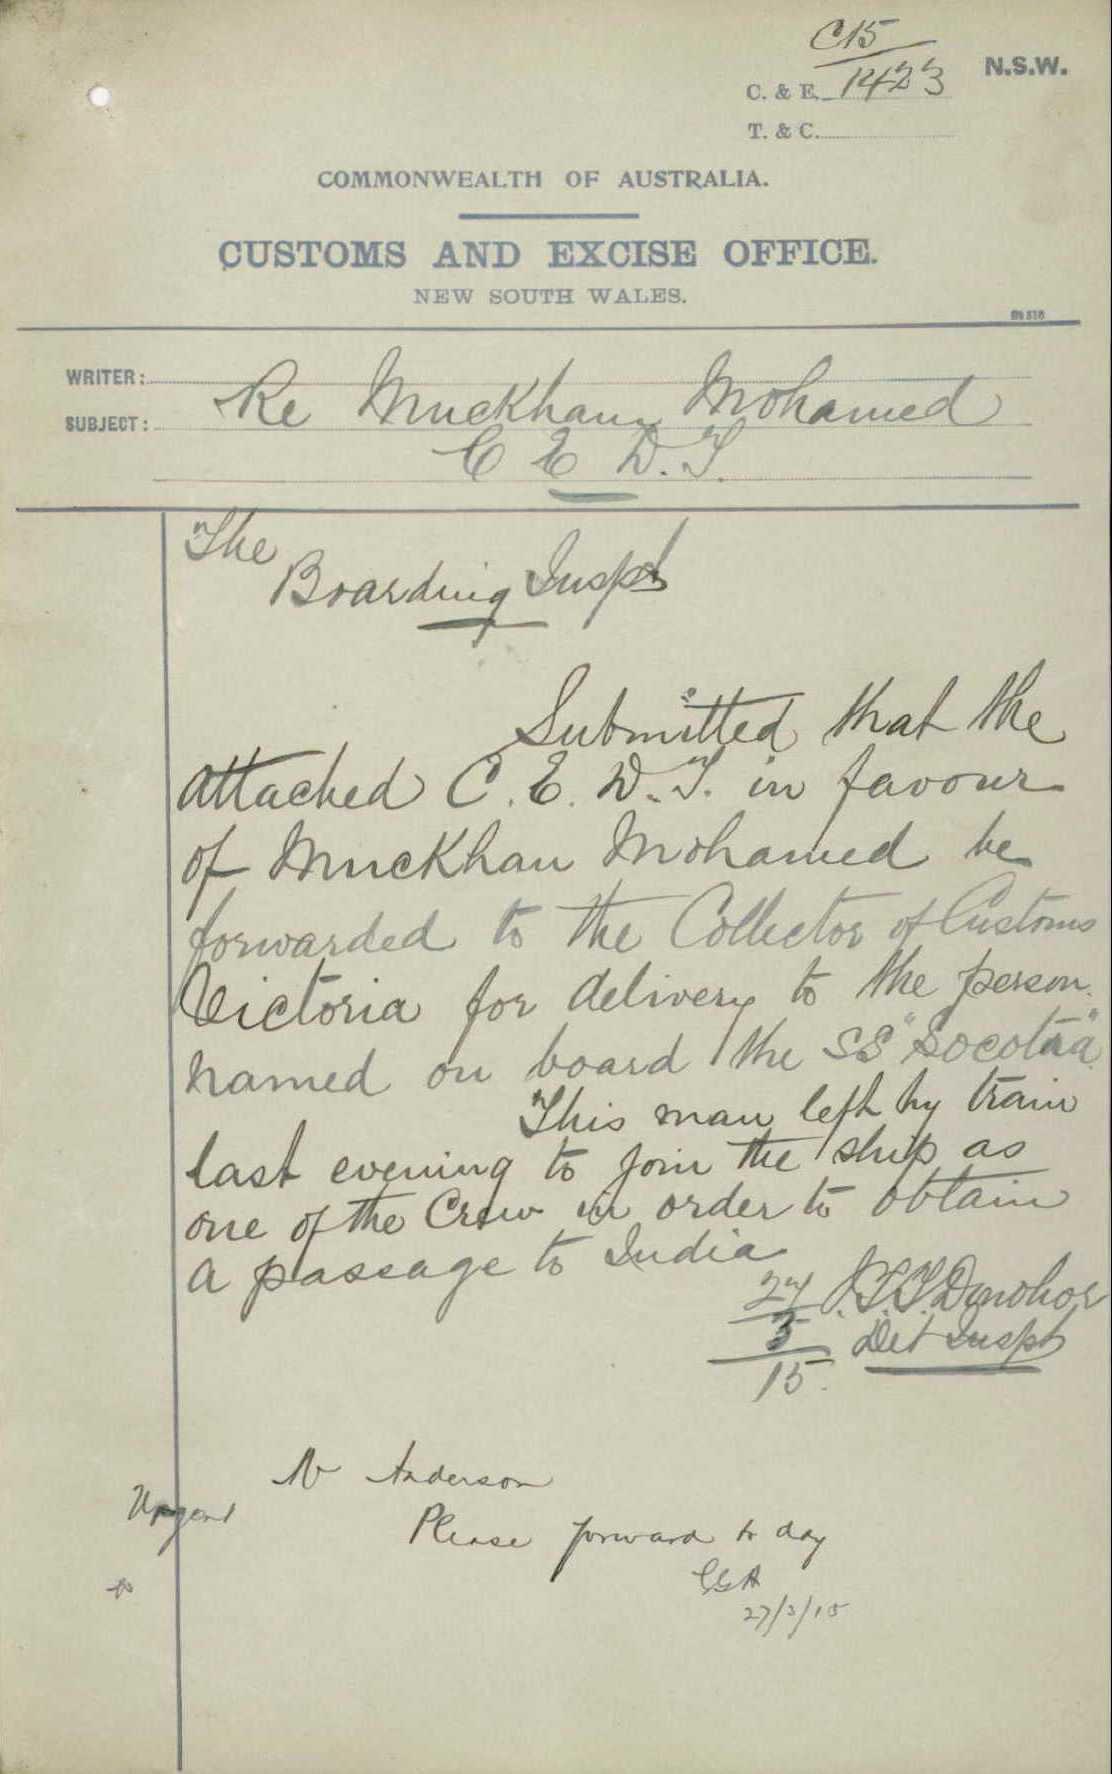 C15
C. & E. 1423 N.S.W.
T. & C.
COMMONWEALTH OF AUSTRALIA.
CUSTOMS AND EXCISE OFFICE.
NEW SOUTH WALES.
WRITER:
SUBJECT: Re Muckhan Mohamed
C E D.T.
The
Boarding Inspr
Submitted that the
attached C. E. D. T. in favour
of Muckhan Mohamed be
forwarded to the Collector of Customs
Victoria for delivery to the person
named on board the SS "Socotra"
This man left by train
last evening to join the ship as
one of the Crew in order to obtain
a passage to India
27 J.T.T. Donohoe
3 Det Inspr
15.
Mr Anderson
Urgent
Please forward to day
27/3/15